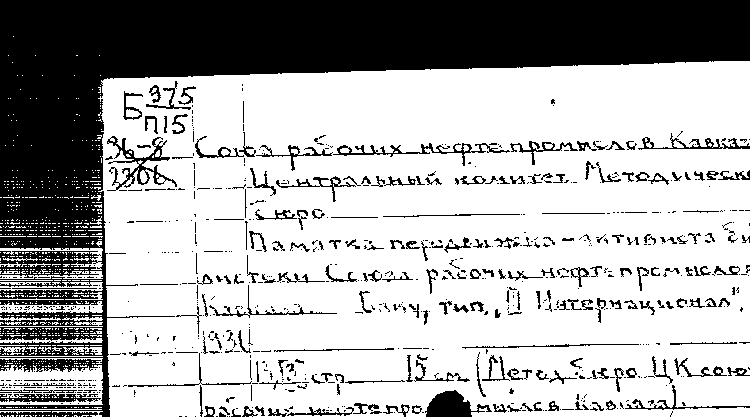 Б 375
П15
36-8
2306
Союз рабочих нефтепромыслов Кавказа
Центральный комитет Методическо
бюро
Памятка передвижка-активиста би
лиотеки Союза рабочих нефтепромыслов
Кавказа. Баку, тип. „III Интернационал",
1931
стр. 15 см (Метод. бюро ЦК союз
рабочих нефтепро мыслов Кавказа).